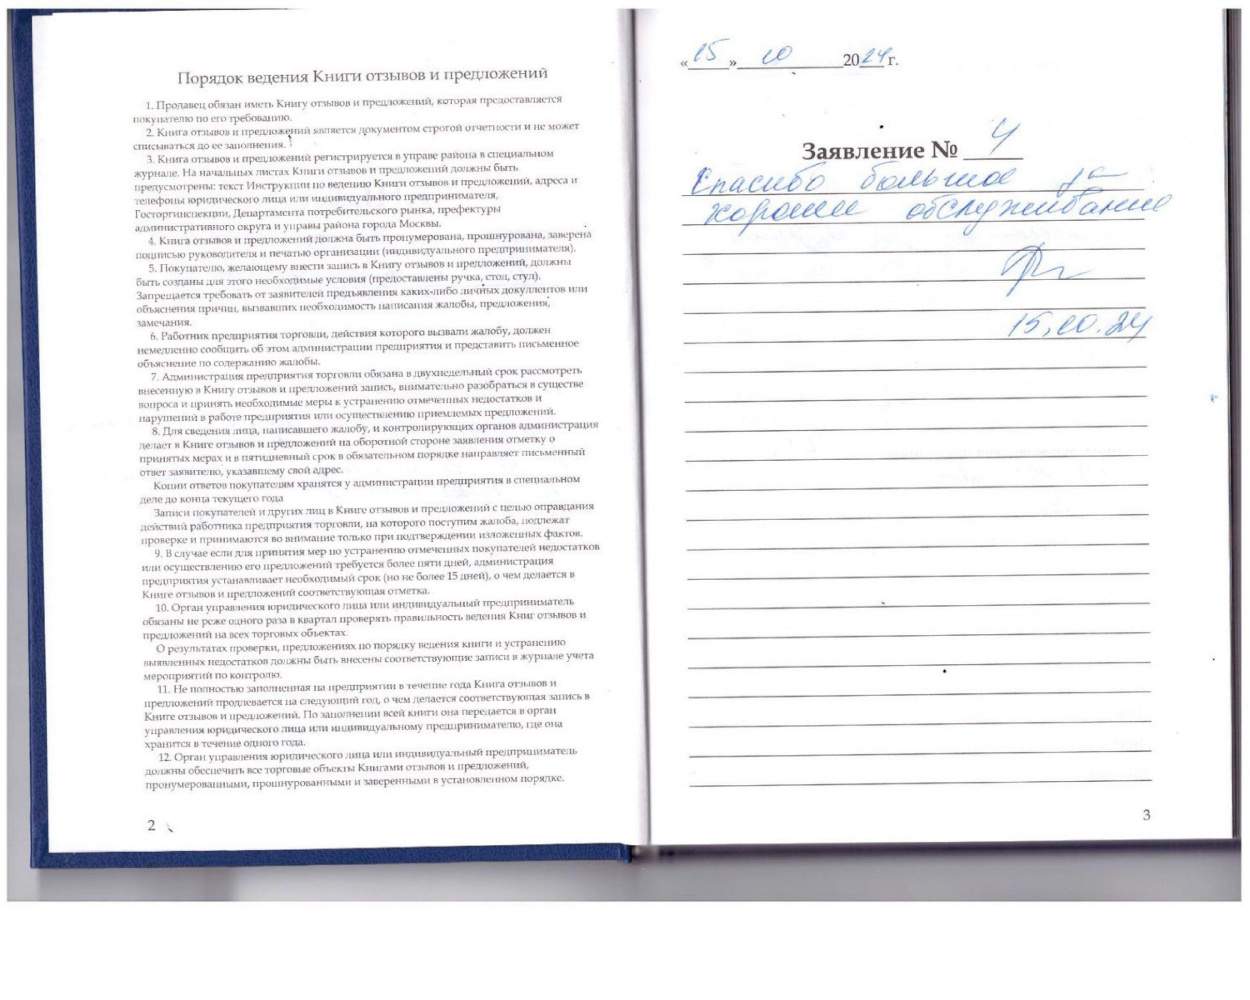 Порядок ведения Книги отзывов и предложений
1. Продавец обязан иметь Книгу отзывов и предложений, которая предоставляется
покупателю по его требованию.
2. Книга отзывов и предложений является документом строгой отчетности и не может
списываться до ее заполнения.
3. Книга отзывов и предложений регистрируется в управе района в специальном
журнале. На начальных листах Книги отзывов и предложений должны быть
предусмотрены: текст Инструкции по ведению Книги отзывов и предложений, адреса и
телефоны юридического лица или индивидуального предпринимателя,
Госторгинспекции, Департамента потребительского рынка, префектуры
административного округа и управы района города Москвы.
4. Книга отзывов и предложений должна быть пронумерована, прошнурована, заверена
подписью руководителя и печатью организации (индивидуального предпринимателя).
5. Покупателю, желающему внести запись в Книгу отзывов и предложений, должны
быть созданы для этого необходимые условия (предоставлены ручка, стол, стул).
Запрещается требовать от заявителей предъявления каких-либо личных докуллентов или
объяснения причин, вызвавших необходимость написания жалобы, предложения,
замечания.
6. Работник предприятия торговли, действия которого вызвали жалобу, должен
немедленно сообщить об этом администрации предприятия и представить письменное
объяснение по содержанию жалобы.
7. Администрация предприятия торговли обязана в двухнедельный срок рассмотреть
внесенную в Книгу отзывов и предложений запись, внимательно разобраться в существе
вопроса и принять необходимые меры к устранению отмеченных недостатков и
нарушений в работе предприятия или осуществлению приемлемых предложений.
8. Для сведения лица, написавшего жалобу, и контролирующих органов администрация
делает в Книге отзывов и предложений на оборотной стороне заявления отметку о
принятых мерах и в пятидневный срок в обязательном порядке направляет письменный
ответ заявителю, указавшему свой адрес.
Копии ответов покупателям хранятся у администрации предприятия в специальном
деле до конца текущего года
Записи покупателей и других лиц в Книге отзывов и предложений с целью оправдания
действий работника предприятия торговли, на которого поступим жалоба, подлежат
проверке и принимаются во внимание только при подтверждении изложенных фактов.
9. В случае если для принятия мер по устранению отмеченных покупателей недостатков
или осуществлению его предложений требуется более пяти дней, администрация
предприятия устанавливает необходимый срок (но не более 15 дней), о чем делается в
Книге отзывов и предложений соответствующая отметка.
10. Орган управления юридического лица или индивидуальный предприниматель
обязаны не реже одного раза в квартал проверять правильность ведения Книг отзывов и
предложений на всех торговых объектах.
О результатах проверки, предложениях по порядку ведения книги и устранению
выявленных недостатков должны быть внесены соответствующие записи в журнале учета
мероприятий по контролю.
11. Не полностью заполненная на предприятии в течение года Книга отзывов и
предложений продлевается на следующий год, о чем делается соответствующая запись в
Книге отзывов и предложений. По заполнении всей книги она передается в орган
управления юридического лица или индивидуальному предпринимателю, где она
хранится в течение одного года.
12. Орган управления юридического лица или индивидуальный предприниматель
должны обеспечить все торговые объекты Книгами отзывов и предложений,
пронумерованными, прошнурованными и заверенными в установленном порядке.
2
«15» 10 2024 г.
Заявление № 4
Спасибо большое за
хорошее обслуживание
15.10.24
3